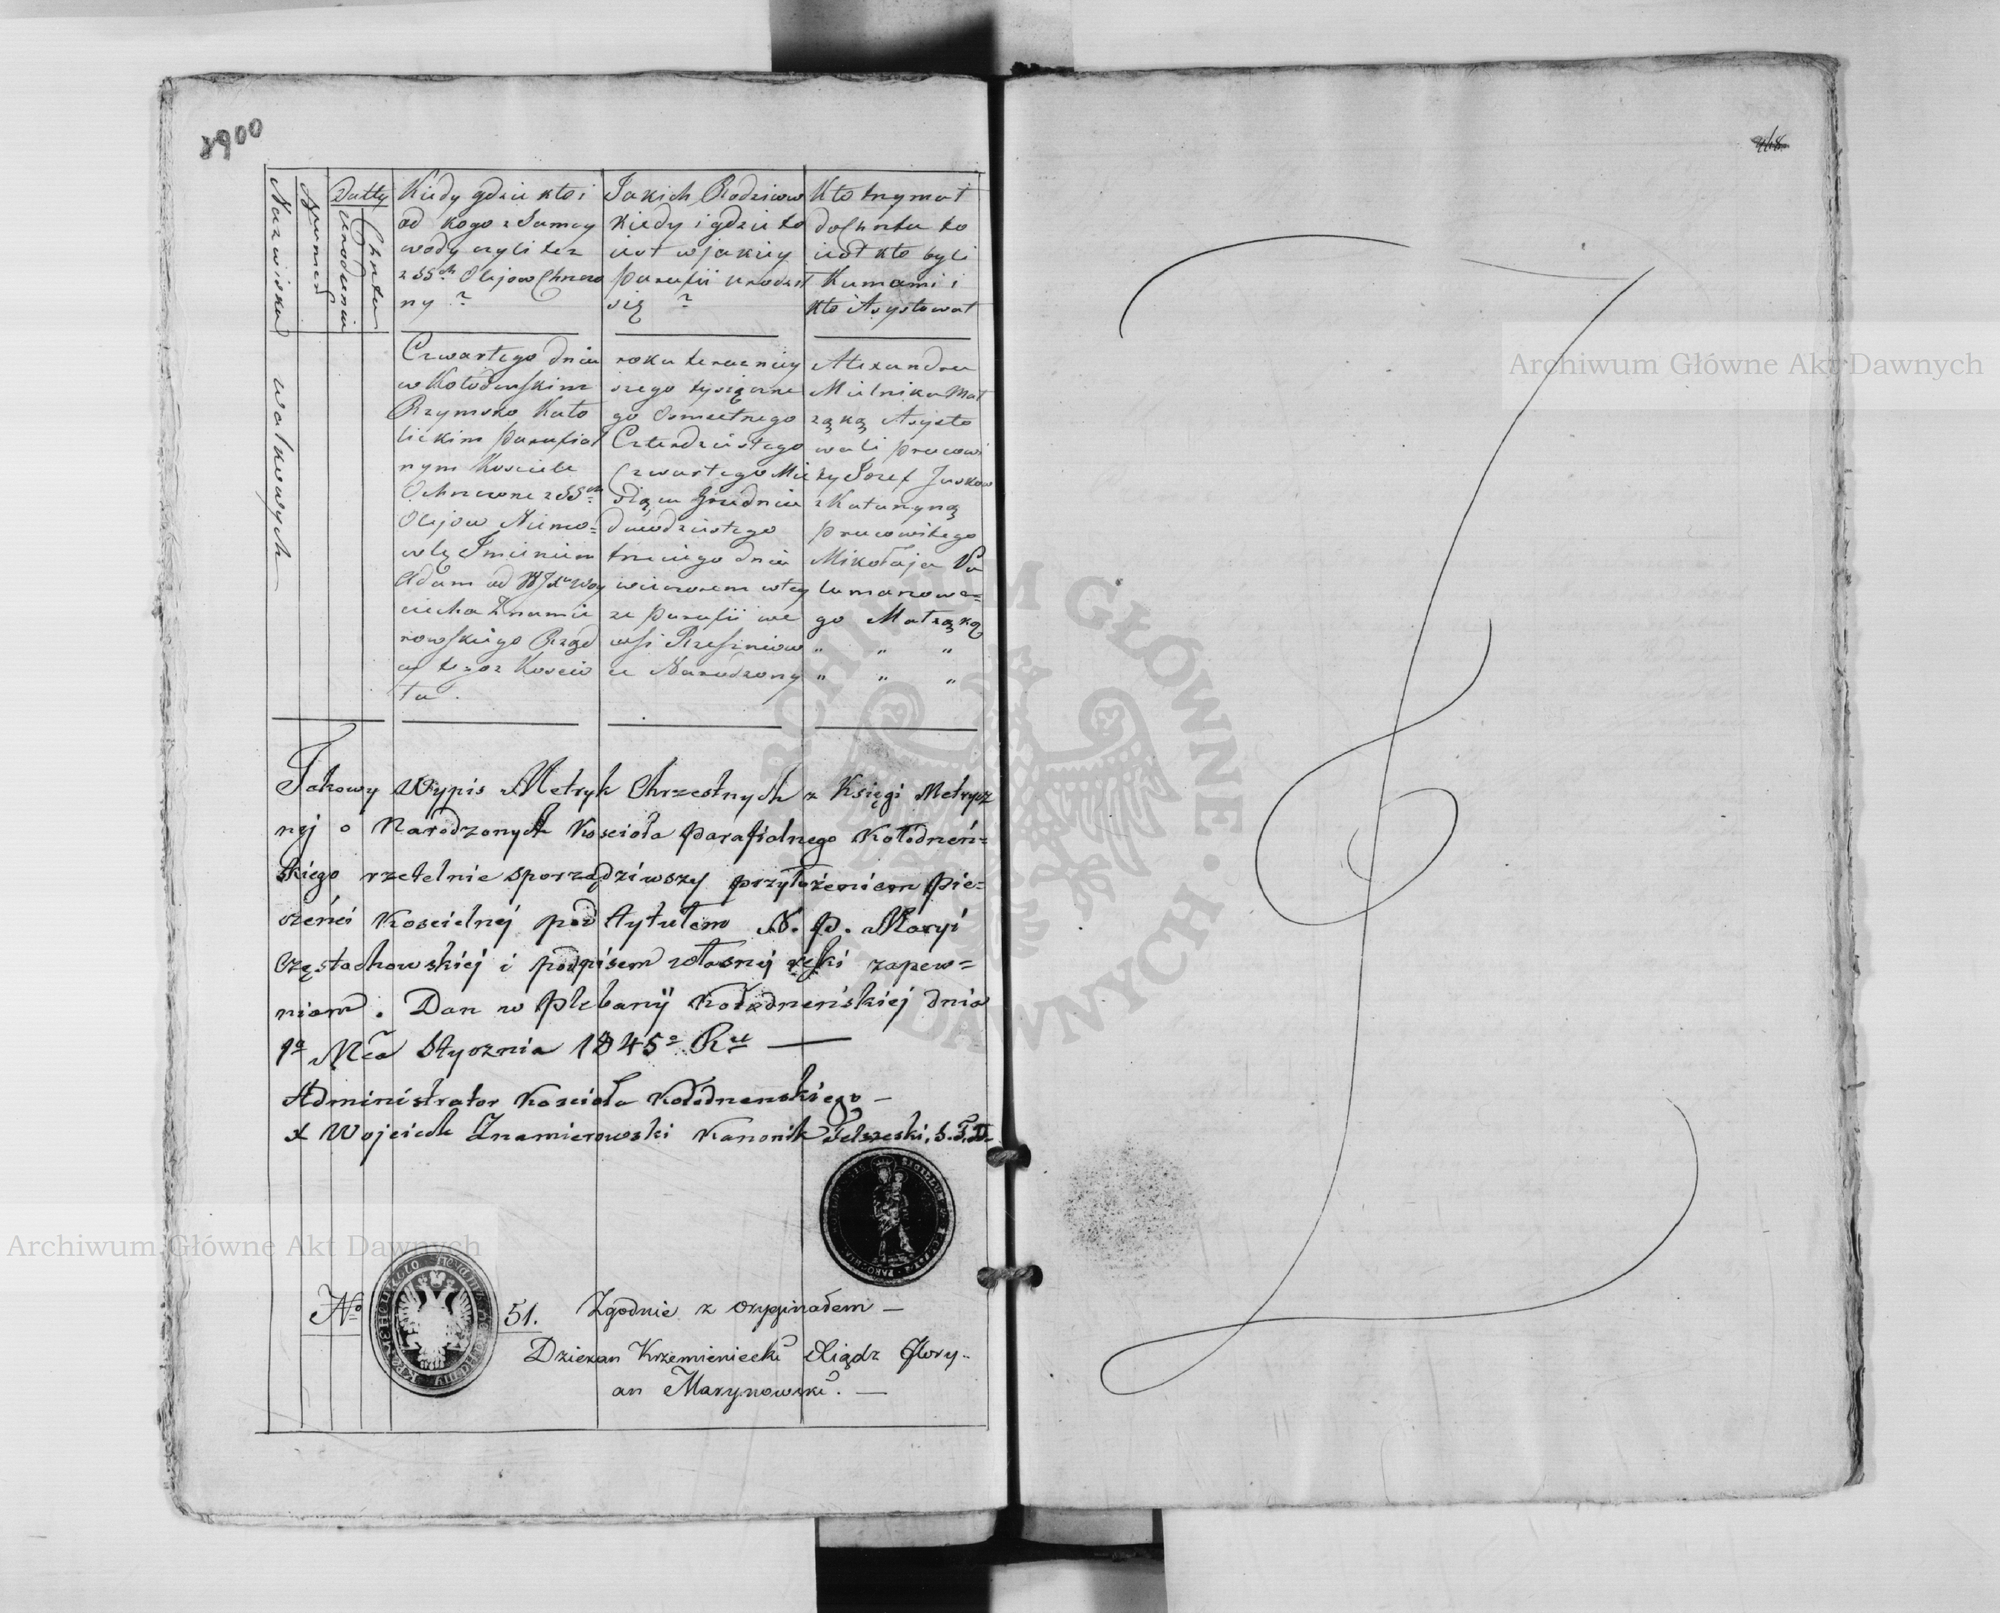 8900
Nazwiska
Numera
Datty
Urodzenia
Chrztu
Kiedy gdzie kto i
od kogo z Samey
wody czyli też
z SSch Olejow Chrzczo
ny ?
Jakich Rodzicow
Kiedy i gdzie to
iest w jakiey
Parafii urodził
się ?
Kto trzymał
do Chrztu to
iest kto byli
Kumami i
kto Asystował
Walkowych
Czwartego dnia
w Kołodenskim
Rzymsko Kato
lickim Parafial
nym Kosciele
Ochrzczone z SSch
Olejow Niemo=
wlę Imieniem
Adam od Woy
ciecha Znamie
rowskiego Rządcy
tegoz Koscio
ła.
roku terazniey
szego tysiączne
go Osmsetnego
Czterdziestego
Czwartego Mie
siąca Grudnia
dwudziestego
trzeciego dnia
wieczorem w tey
ze Parafii we
wsi Rzeszniow
ce Narodzony
Alexandra
Mielnika Mał
żąką Asysto
wali Pracowi
ty Jozef Juskow
z Katarzyną
Pracowitego
Mikołaja
go Małżąką
" " "
" " "
Takowy Wypis Metryk Chrzestnych z Księgi Metrycz
nej o Narodzonych Kościoła Parafialnego Kołodneń=
skiego rzetelnie sporządziwszy przyłożeniem Pie=
częńci Koscielnej pod tytułem N. P. Maryi
Częstochowskiej i podpisem własnej ręki zapew=
niam. Dan w Plebanÿ Kołodneńskiej dnia
1a Mca Stycznia 1845o Ru —
Administrator Kościoła Kołodnenskiego —
X Wojciech Znamierowski Kanonik Telszeski, S. T. D.
No 51. Zgodnie z oryginałem —
Dziekan Krzemieniecki Xiądz Flory-
an Marynowski. —
Archiwum Główne Akt Dawnych
Archiwum Główne Akt Dawnych
ARCHIWUM GŁÓWNE AKT DAWNYCH